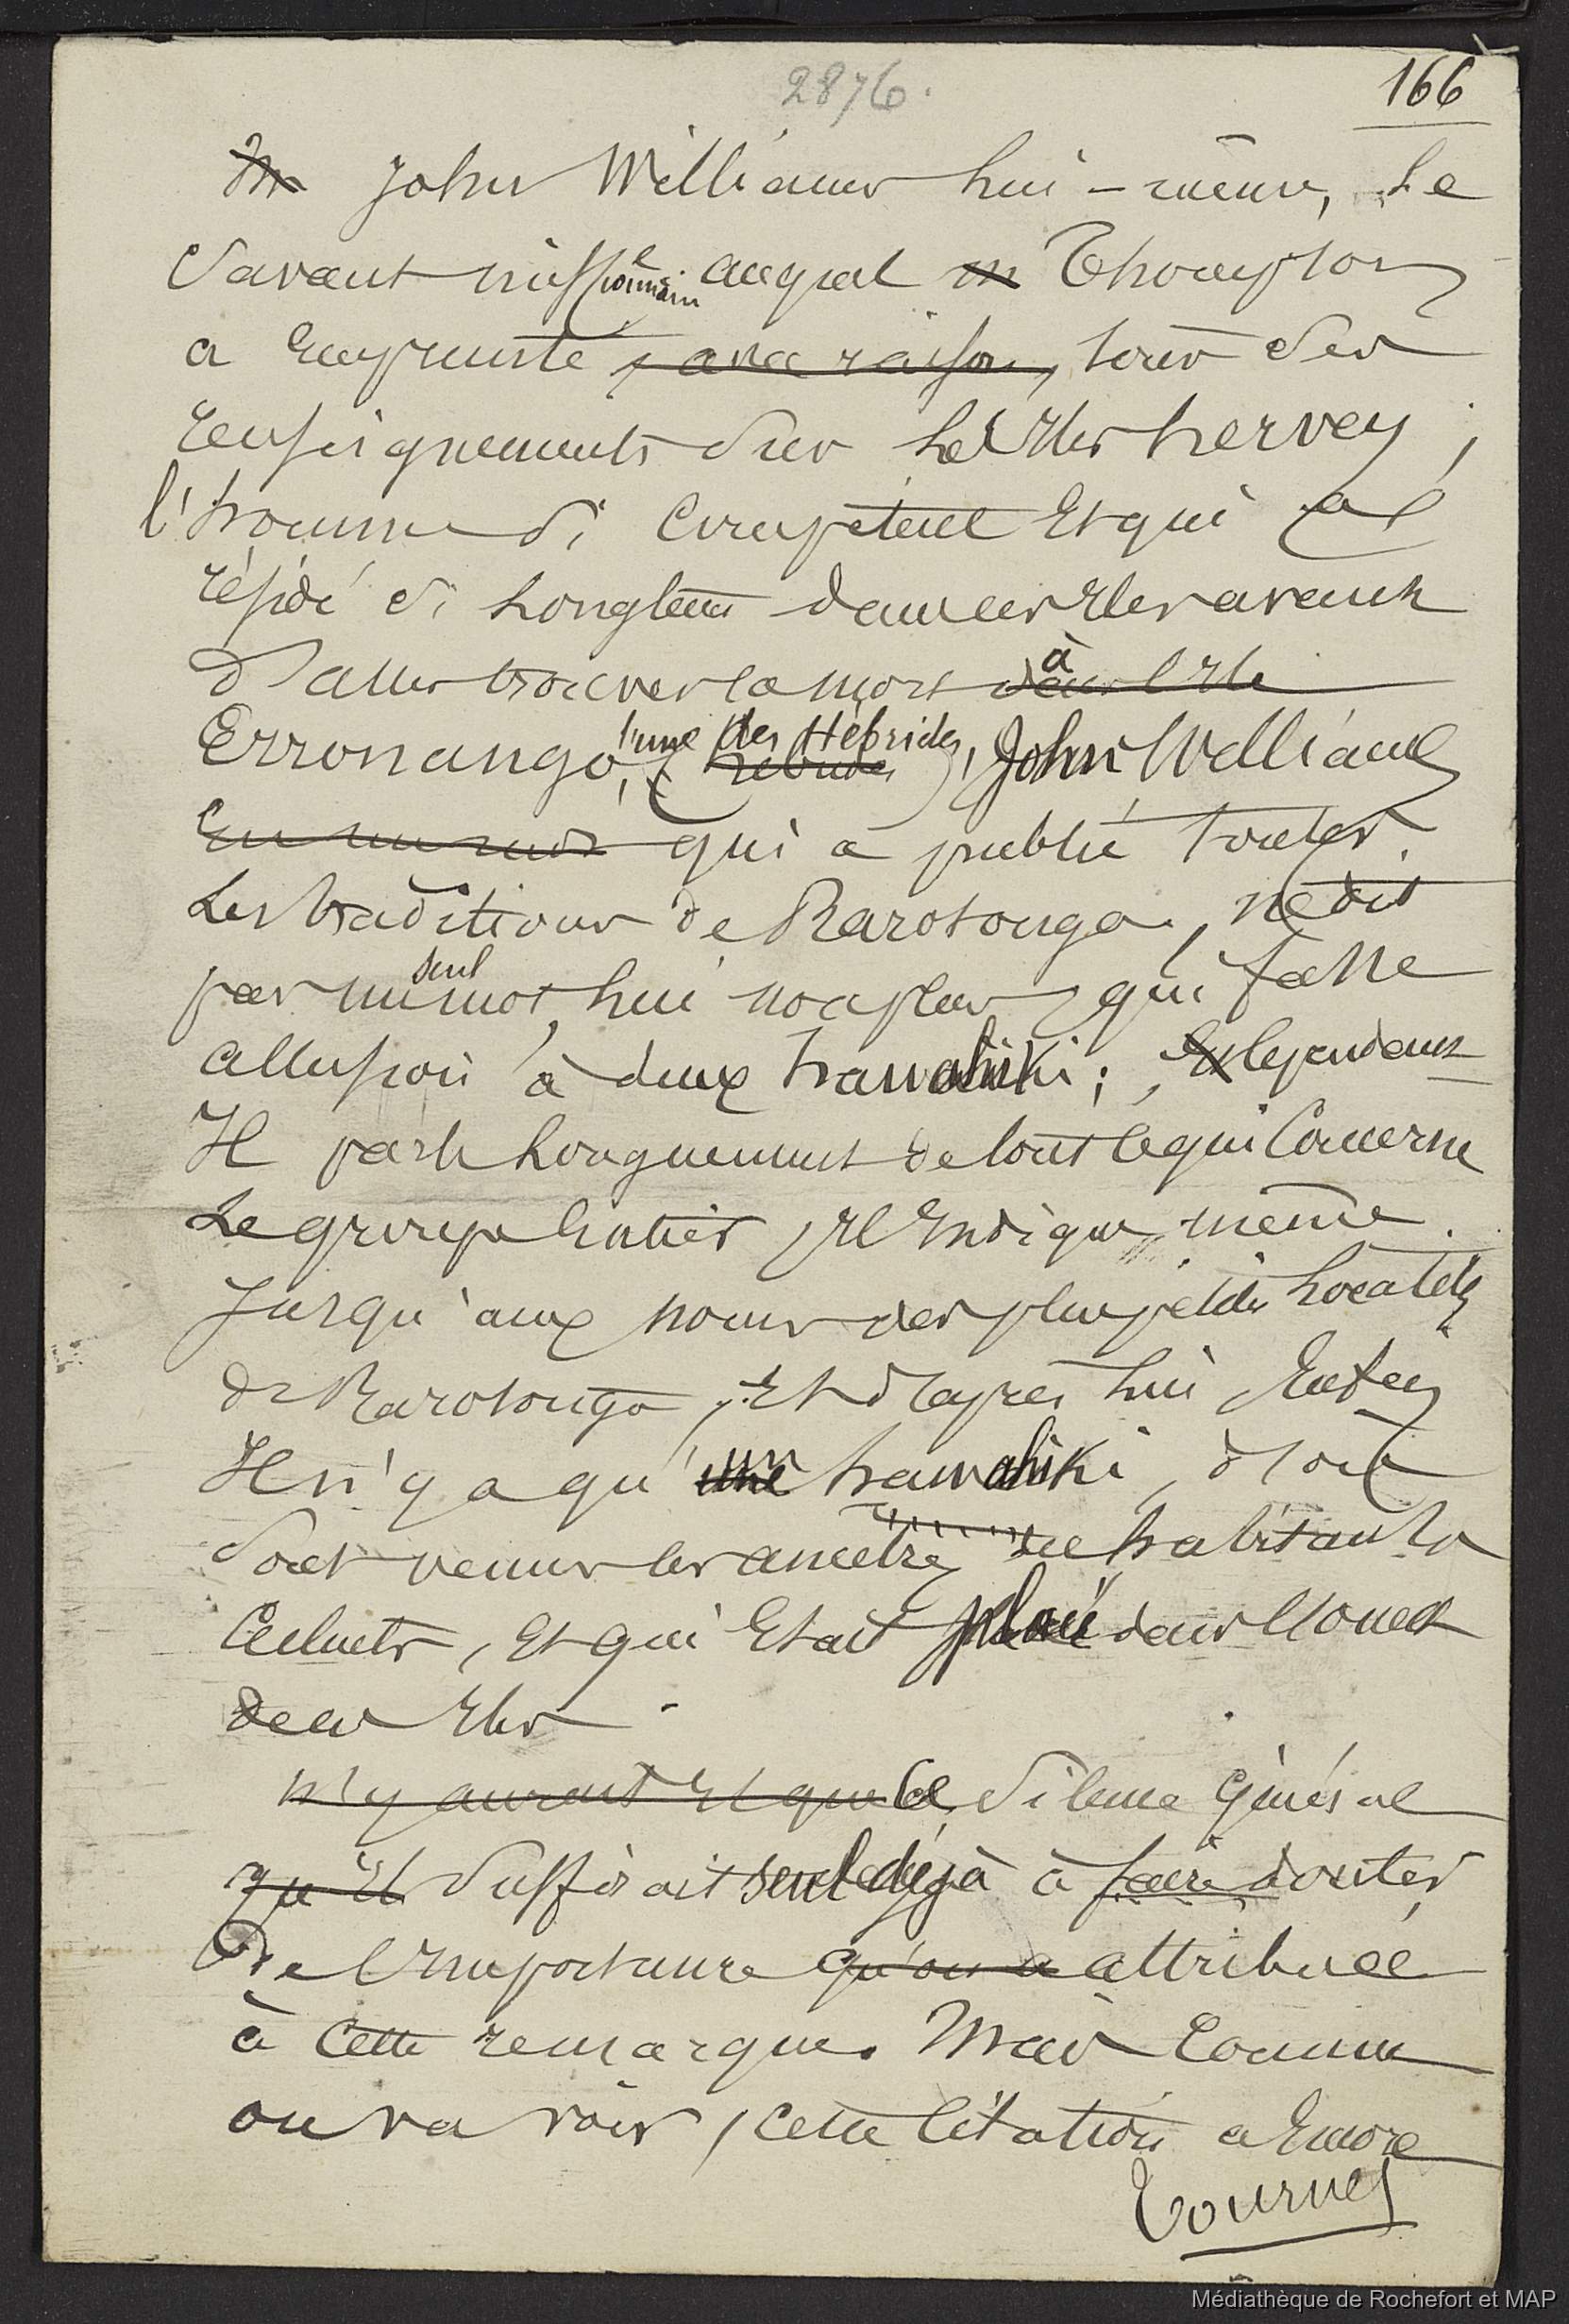 2876.
166
M John Williams lui-même, le
savant missionnaire auquel M Thompson
a emprunté, avec raison, tous ses
renseignements sur les îles hervey,
l'homme si compétent et qui a
résidé si longtems dans ces îles avant
d'aller trouver la mort dans l'île à
Erronango, l'une des Hébrides, hebrides, John Williams
en un mot qui a publié toutes
les traditions de Rarotonga, ne dit
pas un seul mot, lui non plus, qui fasse
allusion à deux hawahiki; Et cependant
Il parle longuement de tout ce qui concerne
le groupe entier, Il indique même
jusqu'aux noms des plus petites localités
de Rarotonga, Et d'après lui enfin
Il n'y a qu'une hawahiki, d'où
sont venus les ancêtres des habitants
actuels, et qui était placée dans l'ouest
de ces îles.
n'y aurait-il que ce silence général
qu'il suffirait seul déjà à faire douter
de l'importance qu'on a attribuée
à cette remarque. Mais comme
on va voir, cette citation a encore
Tournez
Médiathèque de Rochefort et MAP